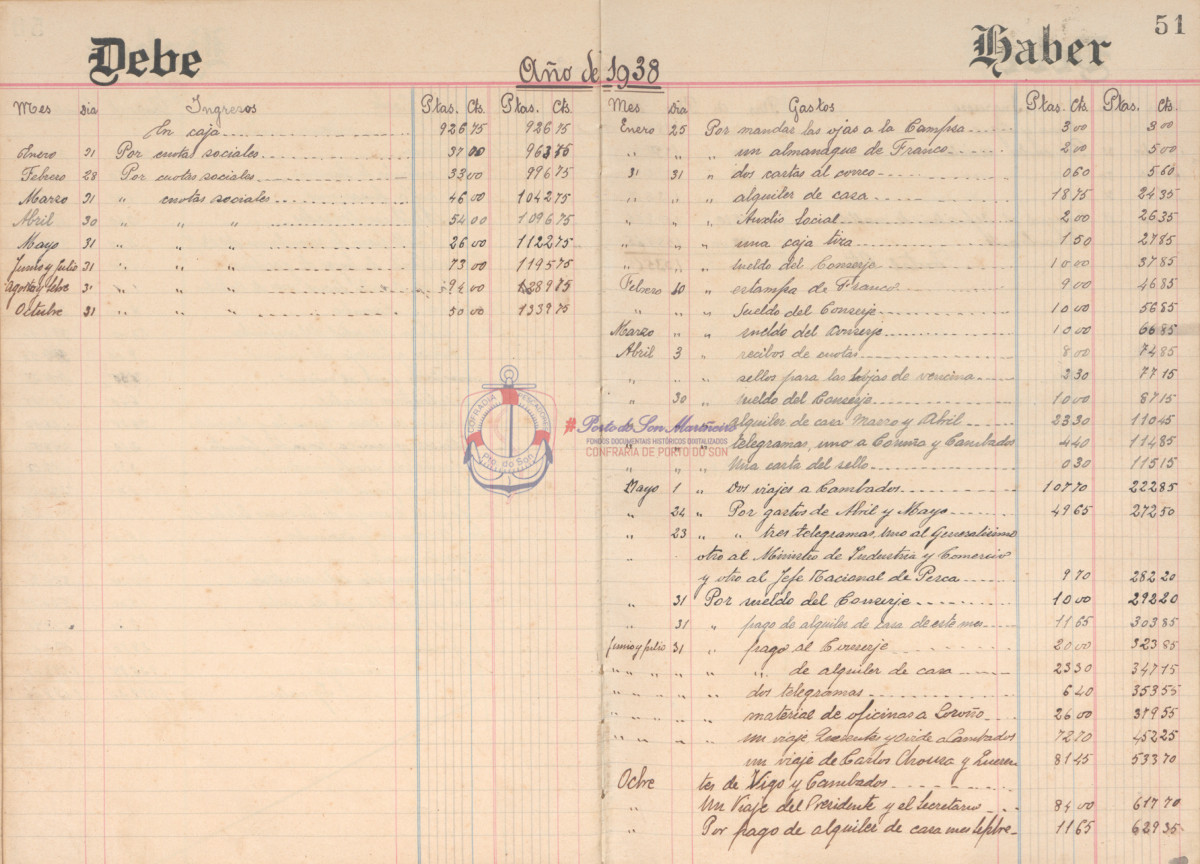 51
Debe
Haber
Año de 1938
Mes Dia Ingresos Ptas. Cts. Ptas. Cts.
En caja 926 75 926 75
Enero 31 Por cuotas sociales 37 00 963 75
Febrero 28 Por cuotas sociales 33 00 996 75
Marzo 31 " cuotas sociales 46 00 1042 75
Abril 30 " " " 54 00 1096 75
Mayo 31 " " " 26 00 1122 75
Junio y Julio 31 " " " 73 00 1195 75
Agosto y Stbre 3 " " " 94 00 1289 75
Octubre 31 " " " 50 00 1339 75
Mes Dia Gastos Ptas. Cts. Ptas. Cts.
Enero 25 Por mandar las ojas a la Campsa 3 00 3 00
" " " un almanaque de Franco 2 00 5 00
31 31 " dos cartas al correo 0 60 5 60
" " " alquiler de casa 18 75 24 35
" " " Auxilio Social 2 00 26 35
" " " una caja tira 1 50 27 85
" " " sueldo del Conserje 10 00 37 85
Febrero 10 " estampa de Franco 9 00 46 85
" " " Sueldo del Conserje 10 00 56 85
Marzo " " sueldo del Conserje 10 00 66 85
Abril 3 " recibos de cuotas 8 00 74 85
" " sellos para las hojas de vencina 2 30 77 15
" 30 " sueldo del Conserje 10 00 87 15
alquiler de casa Marzo y Abril 23 30 110 45
" " telegramas, uno a Coruña y Cambados 4 40 114 85
" " " Una carta del sello 0 30 115 15
Mayo 1 " Dos viajes a Cambados 107 70 222 85
" 24 " Por gastos de Abril y Mayo 49 65 272 50
" 23 " " tres telegramas, uno al Generalisimo
" otro al Ministro de Industria y Comercio
y otro al Jefe Nacional de Pesca 9 70 282 20
" 31 Por sueldo del Conserje 10 00 292 20
" 31 " pago de alquiler de casa de este mes 11 65 303 85
Junio y Julio 31 " pago al Conserje 20 00 323 85
" " " " " " de alquiler de casa 23 30 347 15
" " " " " dos telegramas 6 40 353 55
" " " " " material de oficinas a Loroño 26 00 379 55
" " " " " un viaje a Cambados 72 70 452 25
un viaje de Carlos Arouza y 81 45 533 70
Ocbre tes de Vigo y Cambados
" Un Viaje del Presidente y el Secretario 84 00 617 70
" Por pago de alquiler de casa mes Sepbre 11 65 629 35
COFRADIA PESCADORES
Pto. do Son
#Porto de Son Mariñeiro
FONDOS DOCUMENTAIS HISTÓRICOS DIXITALIZADOS
CONFRARIA DE PORTO DO SON